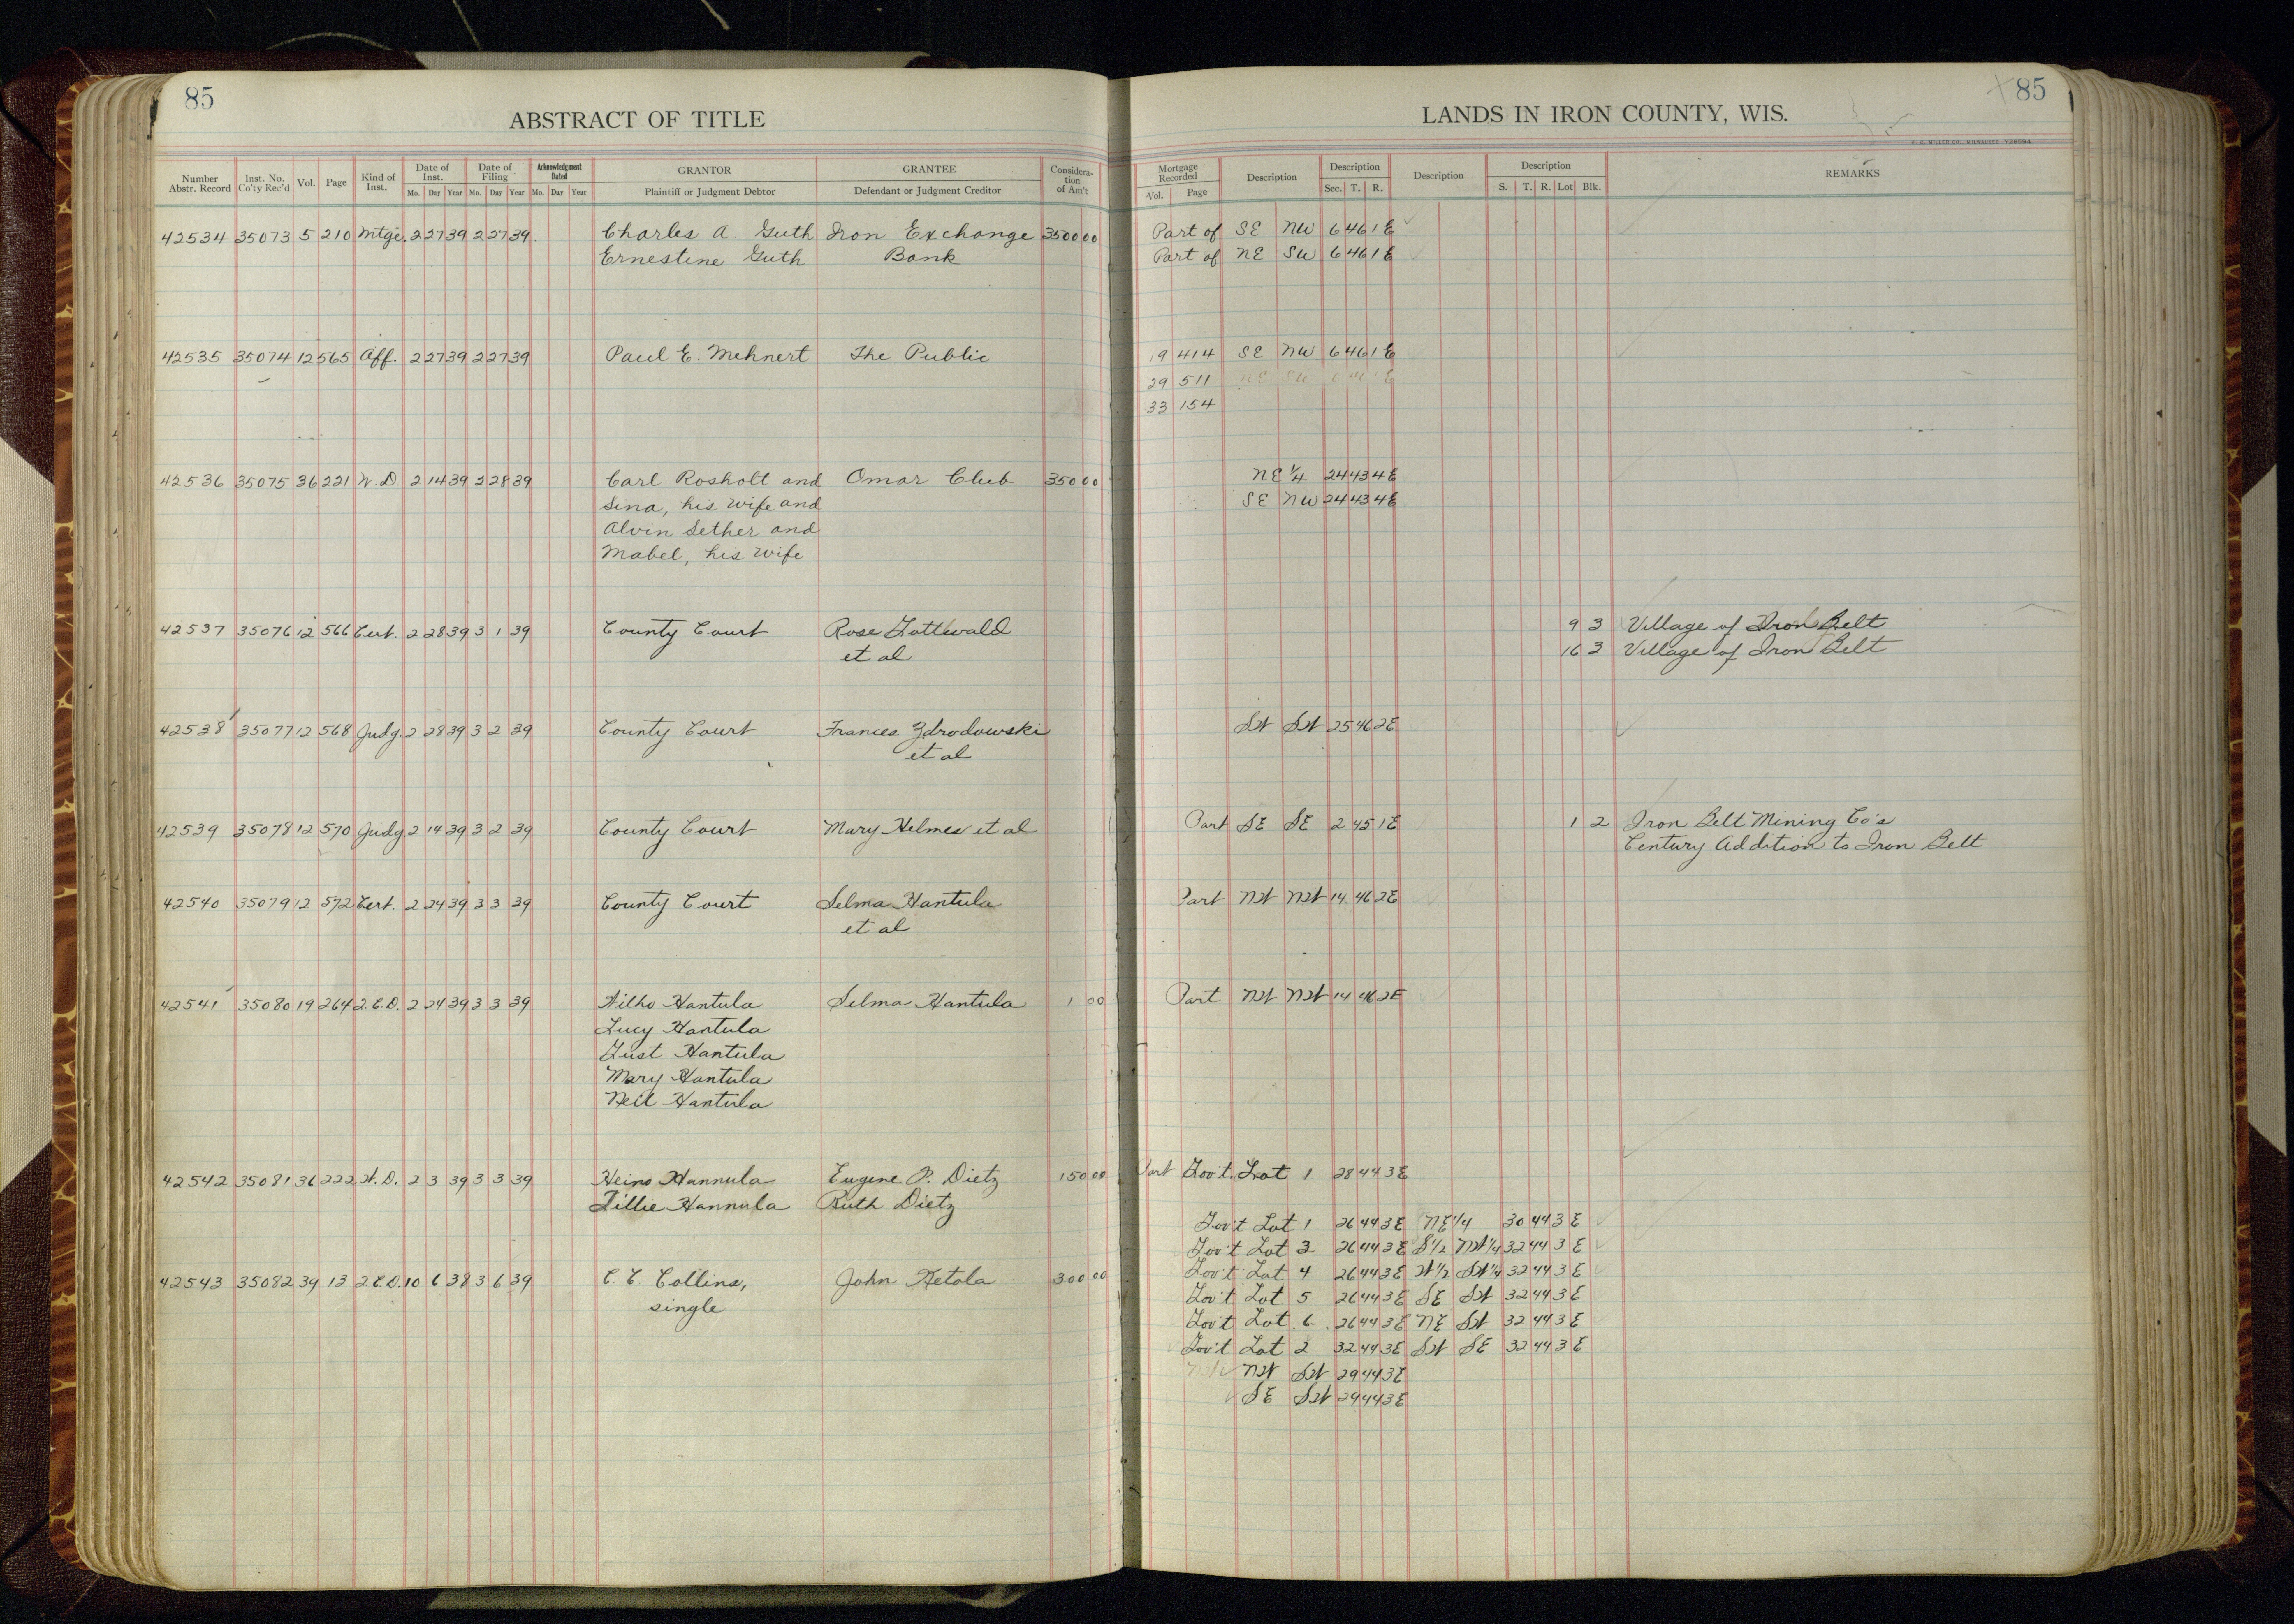 85
ABSTRACT OF TITLE
Number Abstr. Record Inst. No. Co'ty Rec'd Vol. Page Kind of Inst. Date of Inst. Mo. Day Year Date of Filing Mo. Day Year Acknowledgment Dated Mo. Day Year GRANTOR Plaintiff or Judgment Debtor GRANTEE Defendant or Judgment Creditor Considera-tion of Am't
42534 35073 5 210 Mtge. 2 27 39 2 27 39 Charles A. Guth Iron Exchange 3500 00
Ernestine Guth Bank
42535 35074 12 565 Aff. 2 27 39 2 27 39 Paul E. Mehnert The Public
42536 35075 36 221 W.D. 2 14 39 2 28 39 Carl Rosholt and Omar Club 350 00
Sina, his wife and
Alvin Sether and
Mabel, his wife
42537 35076 12 566 Cert. 2 28 39 3 1 39 County Court Rose Gottwald
et al
42538 35077 12 568 Judg. 2 28 39 3 2 39 County Court Frances Zdrodowski
et al
42539 35078 12 570 Judg. 2 14 39 3 2 39 County Court Mary Helmes et al
42540 35079 12 572 Cert. 2 24 39 3 3 39 County Court Selma Hantula
et al
42541 35080 19 264 Q.C.D. 2 24 39 3 3 39 Wilho Hantula Selma Hantula 1 00
Lucy Hantula
Gust Hantula
Mary Hantula
Neil Hantula
42542 35081 36 222 W.D. 2 3 39 3 3 39 Heino Hannula Eugene P. Dietz 150 00
Lillie Hannula Ruth Dietz
42543 35082 39 13 Q.C.D. 10 6 38 3 6 39 C. C. Collins, John Ketola 300 00
single
85
LANDS IN IRON COUNTY, WIS.
H. C. MILLER CO., MILWAUKEE
Mortgage Recorded Vol. Page Description Description Sec. T. R. Description Description S. T. R. Lot Blk. REMARKS
Part of SE NW 6 46 1E
Part of NE SW 6 46 1E
19 414 SE NW 6 46 1E
29 511 NE SW 6 46 1E
33 154
NE 1/4 24 43 4E
SE NW 24 43 4E
9 3 Village of Iron Belt
16 3 Village of Iron Belt
SW SW 25 46 2E
Part SE SE 2 45 1E 1 2 Iron Belt Mining Co's
Century Addition to Iron Belt
Part NW NW 14 46 2E
Part NW NW 14 46 2E
Part Gov't. Lot 1 28 44 3E
Gov't Lot 1 26 44 3E NE 1/4 30 44 3E
Gov't Lot 3 26 44 3E S 1/2 NW 1/4 32 44 3E
Gov't Lot 4 26 44 3E W 1/2 SW 1/4 32 44 3E
Gov't Lot 5 26 44 3E SE SW 32 44 3E
Gov't Lot 6 26 44 3E NE SW 32 44 3E
Gov't Lot 2 32 44 3E SW SE 32 44 3E
NW SW 29 44 3E
SE SW 29 44 3E